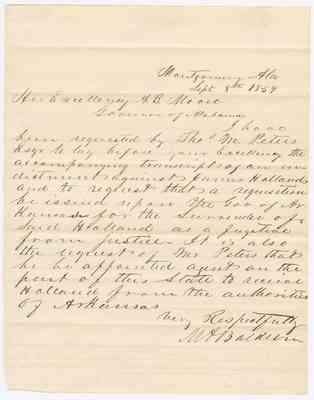 Montgomery Ala
Sept 8th 1859
His Excellency A B Moore
Governor of Alabama
I have
been requested by Thos M Peters
Esqr to lay before your Excellency the
accompanying transcript of an in-
dictment against James Holland
and to request that a requisition
be issued upon the Gov of Ar
Kansas for the Surrender of
Said Holland as a fugitive
from justice. It is also
the request of Mr Peters that
he be appointed agent on the
part of this State to receive
Holland from the authorities
of Arkansas
Very Respectfully
M A Baldwin